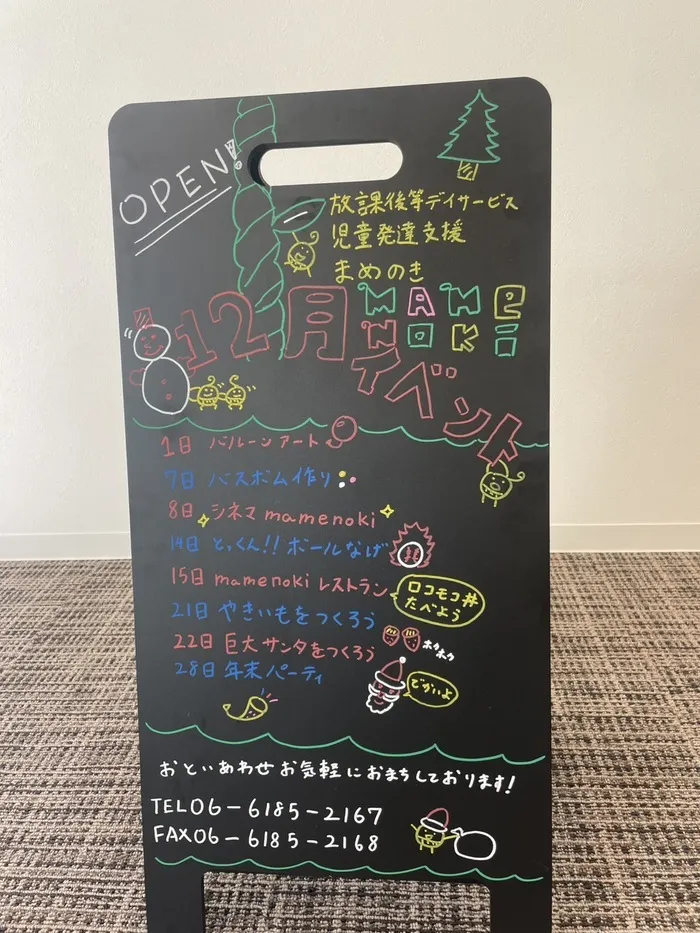 OPEN!
放課後等デイサービス
児童発達支援
まめのき
12月
MAME
NOKI
イベント
1日 バルーンアート
7日 バスボム作り
8日 シネマ mamenoki
14日 とっくん!! ボールなげ
15日 mamenoki レストラン
ロコモコ丼
たべよう
21日 やきいもをつくろう
ホクホク
22日 巨大サンタをつくろう
28日 年末パーティ
でかいよ
おといあわせお気軽におまちしております!
TEL06-6185-2167
FAX06-6185-2168